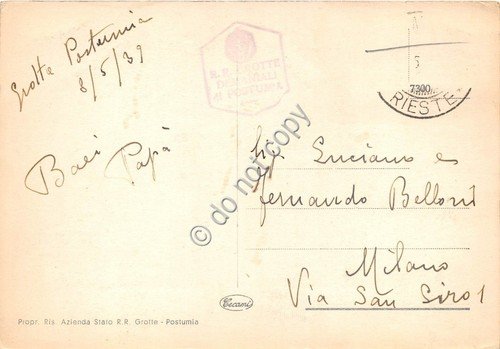 Grotta Postumia
8/5/39
Baci Papà
R.R. GROTTE
DEMANIALI
di POSTUMIA
7300
RIESTE
Luciano e
Fernando Belloni
Milano
Via San Siro 1
© do not copy
Cecami
Propr. Ris. Azienda Stato R.R. Grotte - Postumia